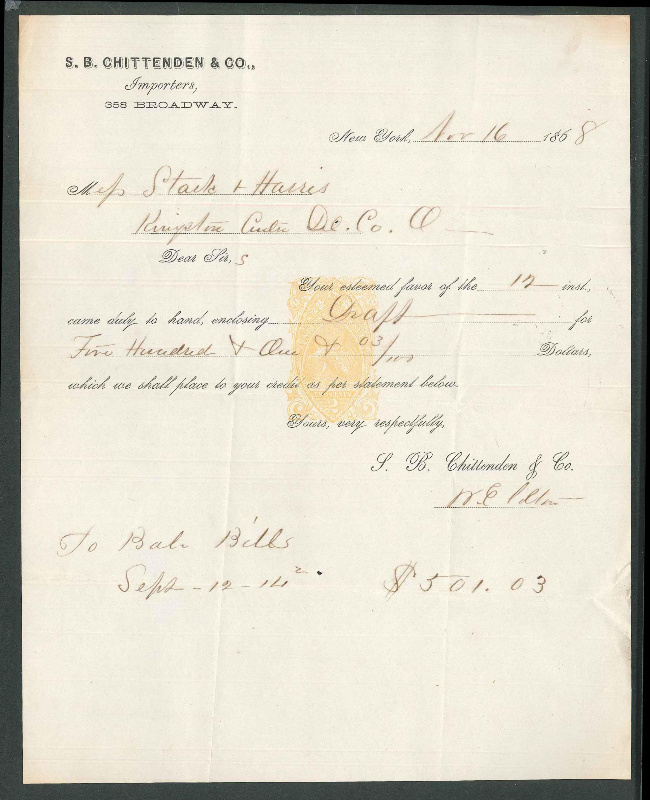 S. B. CHITTENDEN & CO.,
Importers,
358 BROADWAY.
New York, Nov 16 1868
Mess Stark & Harris
Kingston Centre Del. Co. O
Dear Sir,s
Your esteemed favor of the 12 inst.,
came duly to hand, enclosing Draft for
Five Hundred & One & 03/100 Dollars,
which we shall place to your credit as per statement below.
Yours, very respectfully,
S. B. Chittenden & Co.
To Bale Bills
Sept - 12 - 14 $501.03